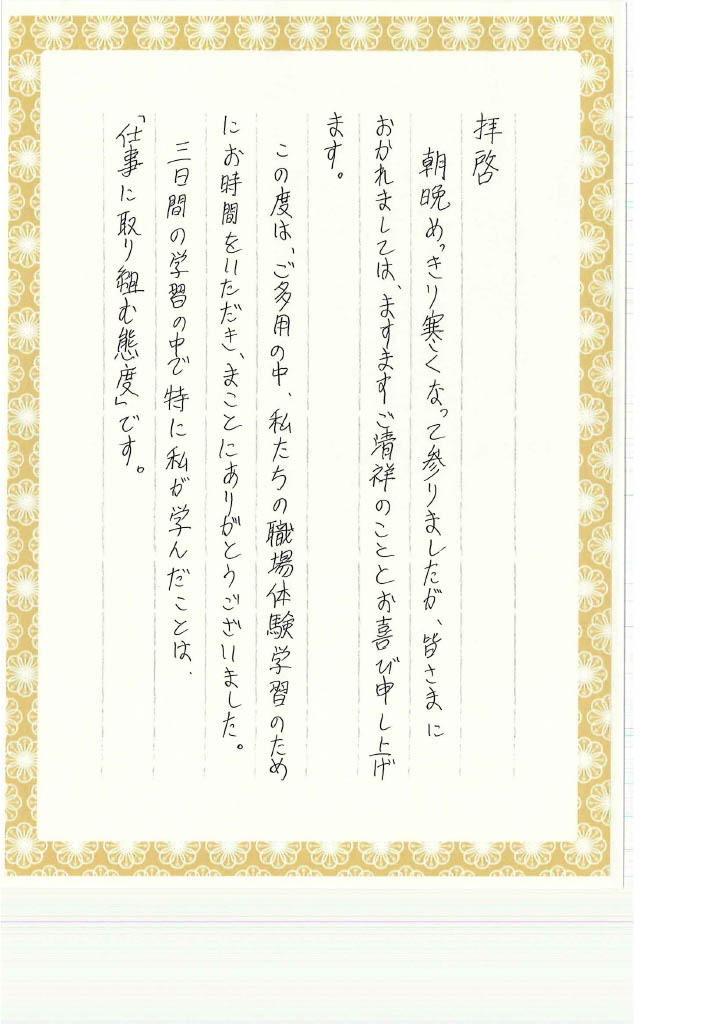 拝啓
朝晩めっきり寒くなって参りましたが、皆さまに
おかれましては、ますますご清祥のこととお喜び申し上げ
ます。
この度は、ご多用の中、私たちの職場体験学習のため
にお時間をいただき、まことにありがとうございました。
三日間の学習の中で特に私が学んだことは、
「仕事に取り組む態度」です。